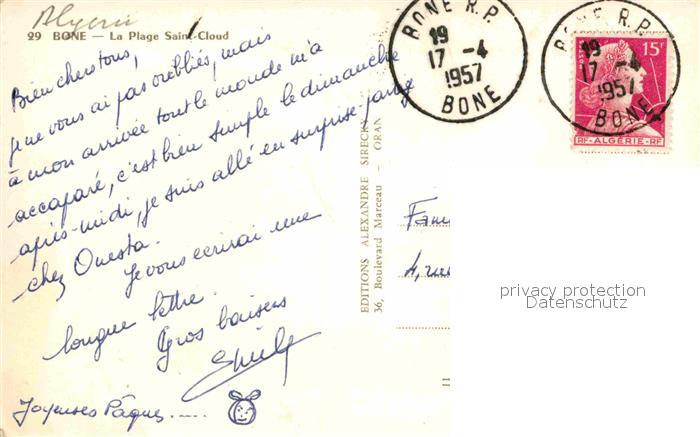 Algérie
29 BONE — La Plage Saint-Cloud
Bien chers tous,
je ne vous ai pas oubliés, mais
à mon arrivée tout le monde m'a
accaparé, c'est bien simple le dimanche
après-midi, je suis allé en surprise party
chez Onesta.
Je vous écrirai une
longue lettre.
Gros baisers
Joyeuses Pâques.....
EDITIONS ALEXANDRE SIRECKY
36, Boulevard Marceau — ORAN
11
BONE R.P.
19
17 -4
1957
BONE
BONE R.P.
19
17 -4
1957
BONE
POSTES
15F
RF-ALGÉRIE-RF
Fam
4, rue
privacy protection
Datenschutz